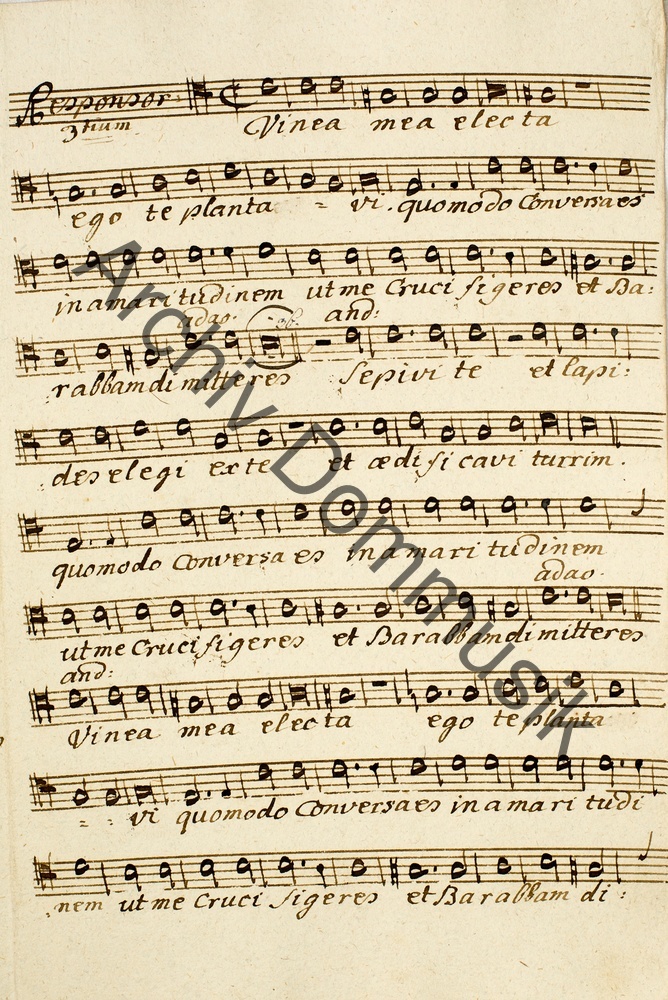 Responsor:
3tium
Vinea mea electa
ego te planta = vi. quomodo Conversa es
in amaritudinem ut me Crucifigeres et Ba:
adao. and:
rabbam dimitteres Sepivi te et lapi:
des elegi ex te et ædificavi turrim.
quomodo Conversa es in amaritudinem
adao.
ut me Crucifigeres et Barabbam dimitteres
and:
Vinea mea electa ego te planta
= = vi quomodo Conversa es in amaritudi
nem ut me Crucifigeres et Barabbam di:
Archiv Dommusik